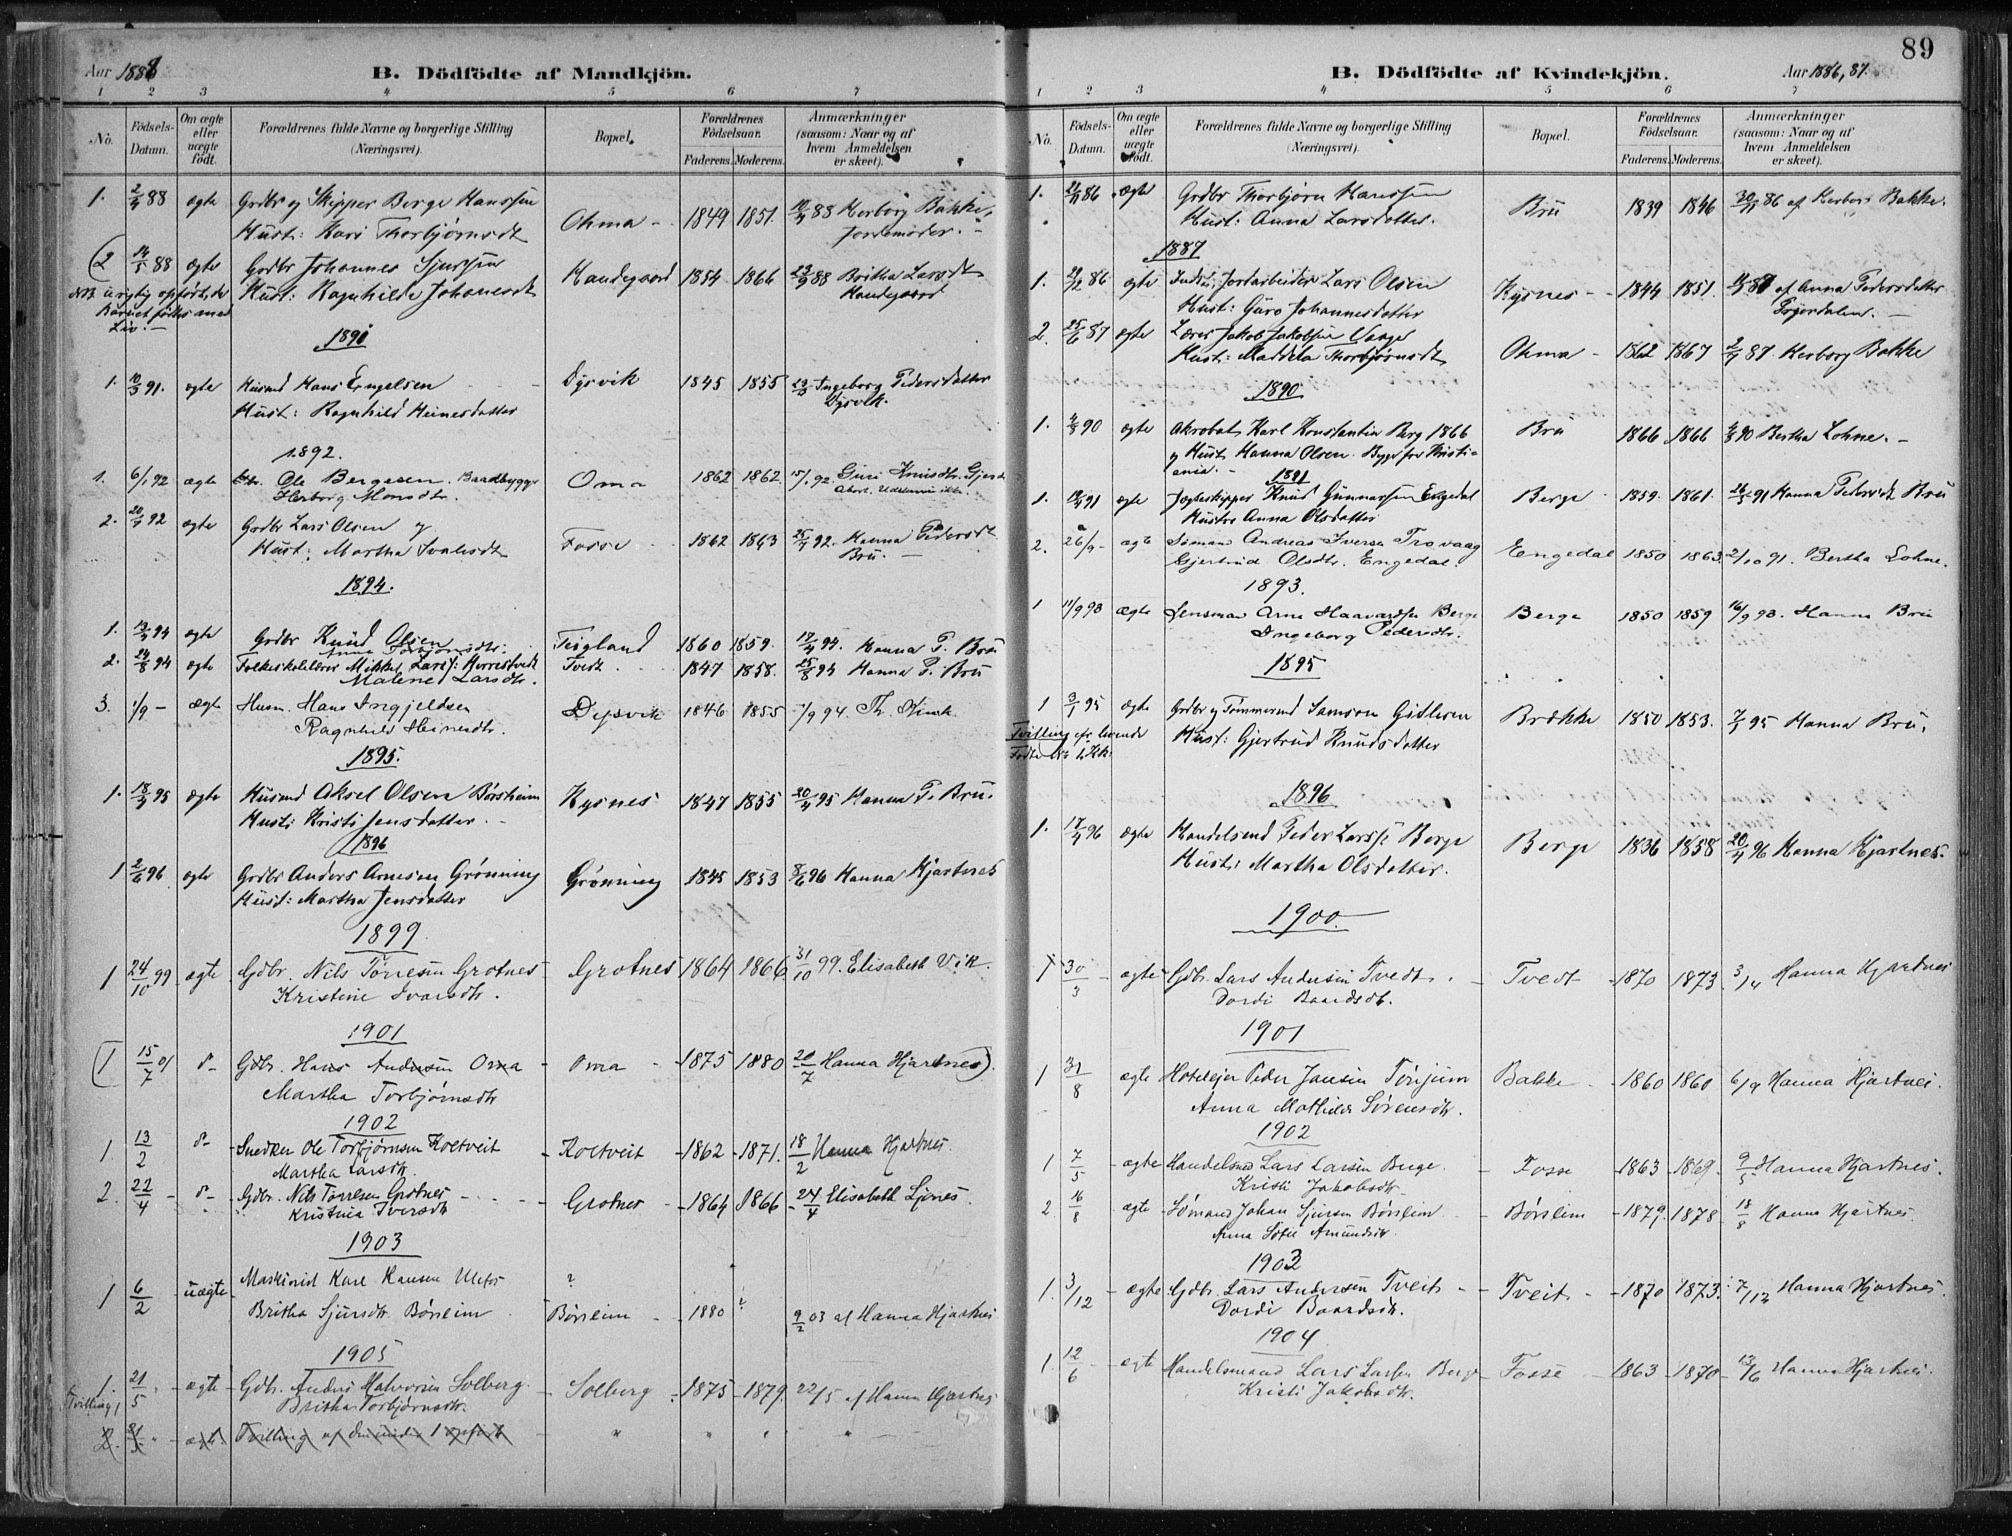 Aar 1888
B. Dödfödte af Mandkjön.
1 2 3 4 5 6 7
No. Fødsels-Datum. Om ægte eller uægte født. Forældrenes fulde Navne og borgerlige Stilling (Næringsvei). Bopæl. Forældrenes Födselsaar. Faderens. Moderens. Anmærkninger (saasom: Naar og af hvem Anmeldelsen er skeet).
1. 2/4 88 ægte Grdbr og Skipper Berge Hanssen Ohma 1849 1851 88 Herborg Bakke,
Hust: Kari Thorbjørnsdt Jordemoder.
(2 14/5 88 ægte Grdbr Johannes Sjursen Handegaard 1854 1866 23/9 88 Britha Larsdt
NB urigtig opført, da Hust: Ragnhilde Johannesdt Handegaard
Barnet fødtes med
Liv.
1891
1. 10/3 91. ægte Husmd Hans Engelsen Dysvik 1845 1855 23/3 Ingeborg Pedersdatter
Hust: Ragnhild Heinesdatter Dysvik.
1892.
1. 6/1 92 ægte Ole Bergesen Baadbygger Oma 1862 1862 15/1 92 Guri Knudsdtr. Gjerde
Herborg Monsdtr.
2. 20/7 92 ægte Grdbr Lars Olsen og Fosse 1862 1863 25/7 92. Hanna Pedersdt
Hust: Martha Ivarsdt Bru.
1894.
1. 13/4 94 ægte Grdbr Knud Olsen Teigland 1860 1859. 17/4 94. Hanna P. Bru
Anna Torbjørnsdtr.
2. 24/8 94 ægte Folkeskolelærer Mikkel Larss: Herrestvedt Tvedt 1847 1858. 25/8 94 Hanna P. Bru
Malene Larsdtr.
3. 1/9 - ægte Husm. Hans Ingjeldsen Dysvik 1846 1855 /9 94. Th. Vinck.
Ragnhild Heinesdtr.
1895.
1. 18/4 95 ægte Husmd Aksel Olsen Børsheim Kysnes 1847 1855 20/4 95 Hanna P. Bru.
Hust: Kristi Jensdatter.
1896
1 2/6 96 ægte Grdbr Anders Arnesen Grønning Grønning 1845 1853 8/6 96 Hanna Hjartnes
Hust: Martha Jensdatter
1899
1 24/10 99 ægte Gdbr. Nils Tørresen Grotnes Grotnes 1864 1866 31/10 99. Elisabeth Vik.
Kristine Ivarsdtr.
1901
(1 15/7 01 d- Gdbr. Hans Andersen Oma Oma 1875 1880 20/7 Hanna Hjartnes).
Martha Torbjørnsdtr
1902
1. 13/2 d- Snedker Ole Torbjørnsen Koltveit Koltveit 1862 1871. 18/2 Hanna Hjartnes.
Martha Larsdtr.
2. 22/4 d- Gdbr. Nils Tørresen Grotnes Grotnes 1864 1866 24/4 Elisabeth Ljones.
Kristina Iversdtr
1903
1 6/2 uægte Maskinist Karl Hansen Ulefos ?
Britha Sjursdtr. Børsheim Børsheim 1880 ? 9/2 03 af Hanna Hjartnes
1905
1. 21/5 ægte Gdbr. Anders Halvorsen Solberg Solberg 1875 1879. 22/5 af Hanna Hjartnes
Tvilling 1 Britha Torbjørnsdtr.
2. 21/5 ægte Tvilling af den under 1 opført " " " " "
89
B. Dödfödte af Kvindekjön.
Aar 1886, 87.
1 2 3 4 5 6 7
No. Fødsels-Datum. Om ægte eller uægte født. Forældrenes fulde Navne og borgerlige Stilling (Næringsvei). Bopæl. Forældrenes Födselsaar. Faderens. Moderens. Anmærkninger (saasom: Naar og af hvem Anmeldelsen er skeet).
1. 86 ægte Grdbr Thorbjørn Hanssen Bru 1839 1846 86 af Herborg Bakke.
Hust: Anna Larsdatter.
1887
1. 86 ægte Jordarbeider Lars Olsen Kysnes 1844 1851. af Anna Pedersdatter
Hust: Guro Johannesdatter
2. 25/6 87 ægte Lærer Jakob Jakobsen Vaage Ohma 1862 1867 2/7 87. Herborg Bakke
Hust: Maddela Thorbjørnsdt
1890
1. 90 ægte Akrobat Karl Konstantin Berg 1866 Bru 1866 1866 90 Bertha Lohne.
og Hust. Hanna Olsen. Byge for Kristi-
ania.
1891
1. 91 ægte Jagteskipper Knud Gunnarssen Engedal Berge 1859. 1861. 91 Hanna Pedersdt Bru
Hustru Anna Olsdatter
2. 26/9 - ægte Sømand Andreas Iversen Trovaag Engedal 1850 1863 2/10 91. Bertha Lohne.
Gjertrud Olsdtr. Engedal.
1893.
1 11/9 93 ægte Lensmand Arne Haavardsen Berge Berge 1850 1859 16/9 93. Hanna Bru
Ingeborg Pedersdtr.
1895
1 3/1 95 ægte Grdbr og Tømmermd Samson Gitlesen Brække 1850 1853. 7/1 95 Hanna Bru.
Tvilling cfr. levende Hust: Gjertrud Knudsdatter
Fødte No 1. Kk.
1896
1. 17/4 96 ægte Handelsmd Peder Larss: Berge Berge 1836 1858 20/4 96 Hanna Hjartnes.
Hust: Martha Olsdatter.
1900
1 30/3 ægte Gdbr. Lars Andersen Tvedt. Tvedt 1870 1873 3/4 Hanna Hjartnes
Dordi Baardsdtr.
1901
1 31/8 ægte Hotelejer Peder Jansen Tønjum Bakke 1860 1860 6/9 Hanna Hjartnes.
Anna Mathilde Sørensdtr.
1902
1 7/5 ægte Handelsmd Lars Larsen Berge. Fosse 1863 1869. 9/5 Hanna Hjartnes.
Kristi Jakobsdtr.
2 16/8 ægte Sømand Johan Sjursen Børsheim Børsheim 1879. 1878 18/8 Hanna Hjartnes.
Anna Sofie Amundsdtr.
1903
1. 3/12 ægte Gdbr. Lars Andersen Tveit Tveit 1870 1873. 7/12 Hanna Hjartnes.
Dordi Baardsdtr.
1904
1. 12/6 ægte Handelsmand Lars Larsen Berge Fosse 1863 1870 13/6 Hanna Hjartnes.
Kristi Jakobsdtr.